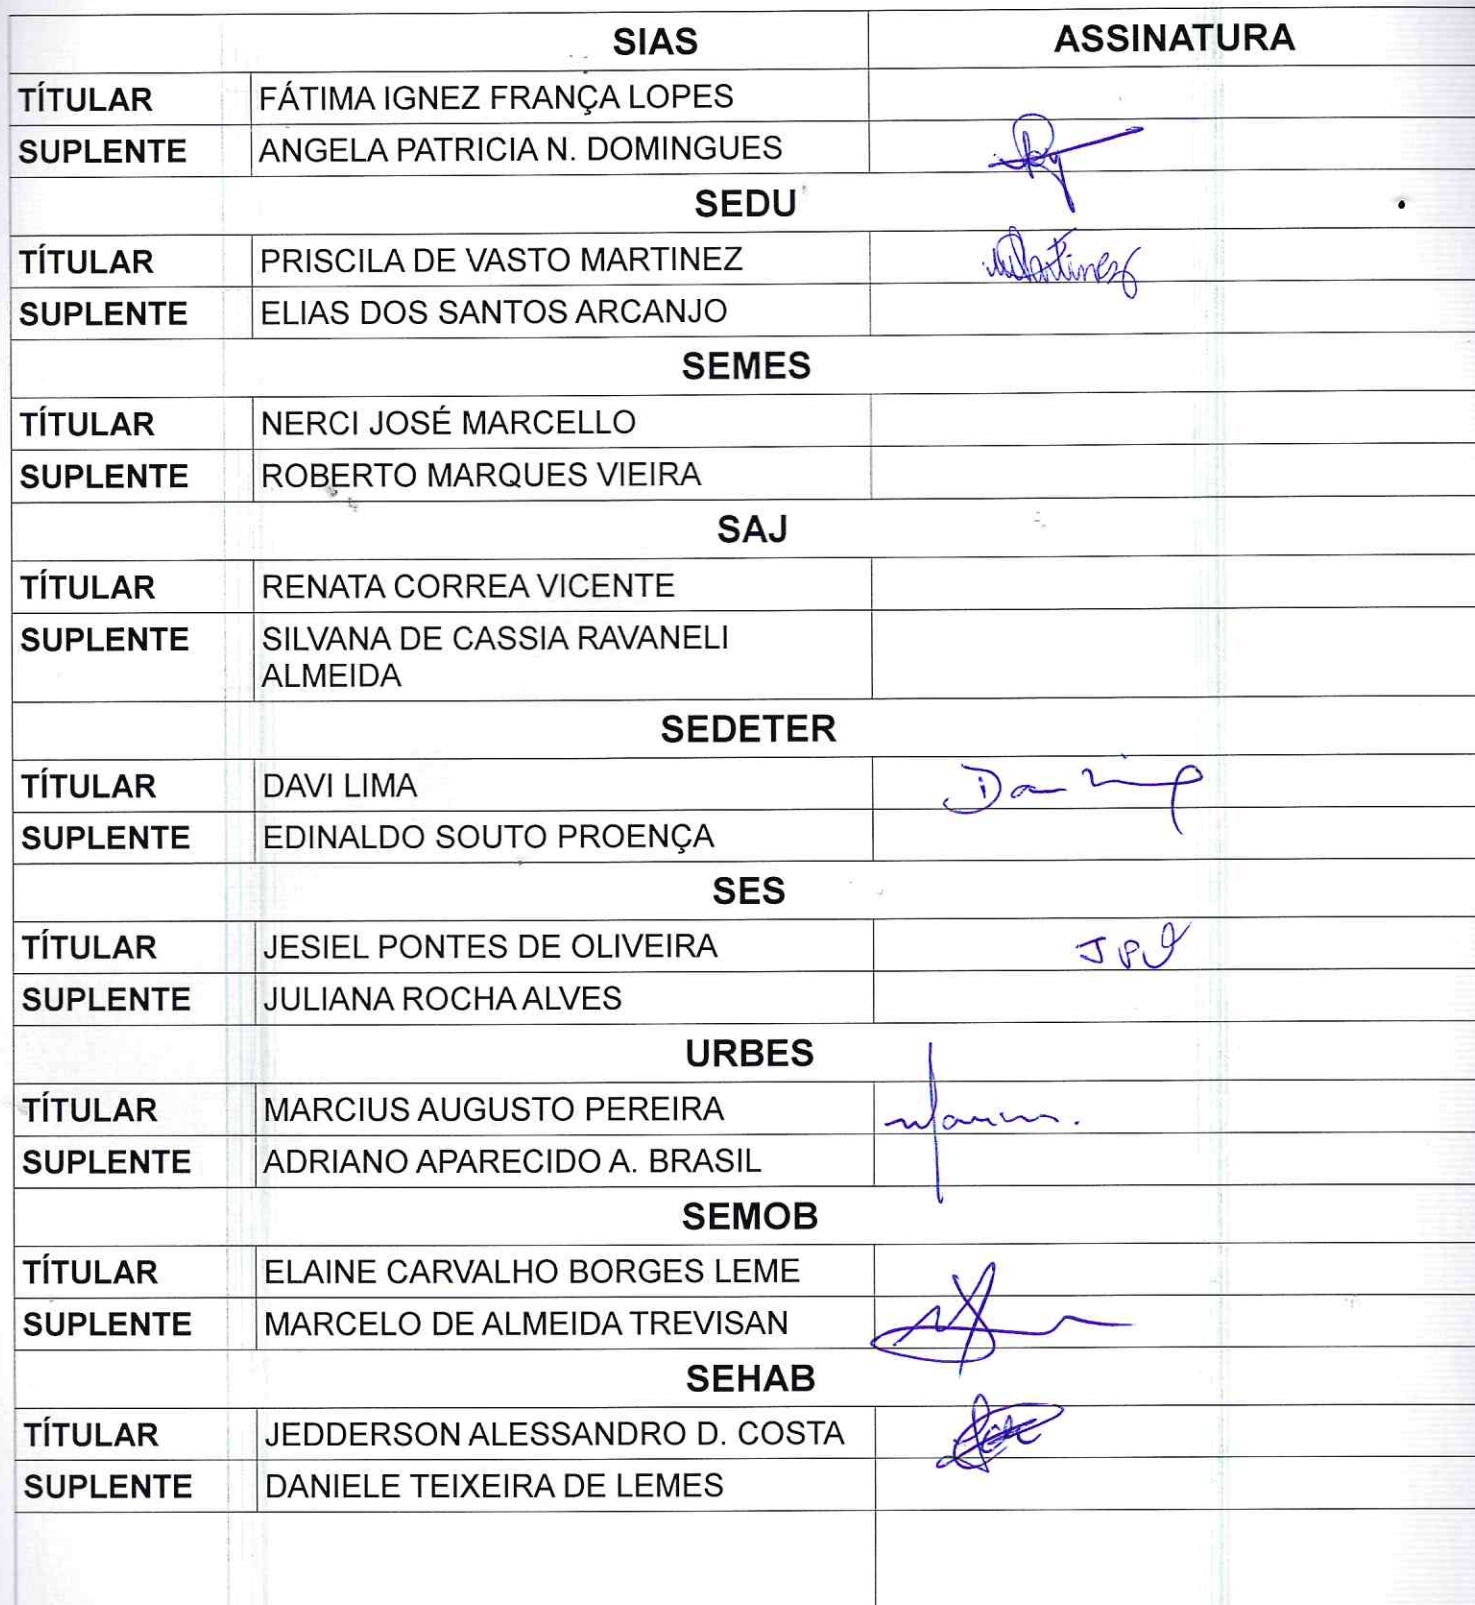 SIAS ASSINATURA
TÍTULAR FÁTIMA IGNEZ FRANÇA LOPES
SUPLENTE ANGELA PATRICIA N. DOMINGUES
SEDU
TÍTULAR PRISCILA DE VASTO MARTINEZ Martinez
SUPLENTE ELIAS DOS SANTOS ARCANJO
SEMES
TÍTULAR NERCI JOSÉ MARCELLO
SUPLENTE ROBERTO MARQUES VIEIRA
SAJ
TÍTULAR RENATA CORREA VICENTE
SUPLENTE SILVANA DE CASSIA RAVANELI
ALMEIDA
SEDETER
TÍTULAR DAVI LIMA
SUPLENTE EDINALDO SOUTO PROENÇA
SES
TÍTULAR JESIEL PONTES DE OLIVEIRA JPO
SUPLENTE JULIANA ROCHA ALVES
URBES
TÍTULAR MARCIUS AUGUSTO PEREIRA
SUPLENTE ADRIANO APARECIDO A. BRASIL
SEMOB
TÍTULAR ELAINE CARVALHO BORGES LEME
SUPLENTE MARCELO DE ALMEIDA TREVISAN
SEHAB
TÍTULAR JEDDERSON ALESSANDRO D. COSTA
SUPLENTE DANIELE TEIXEIRA DE LEMES